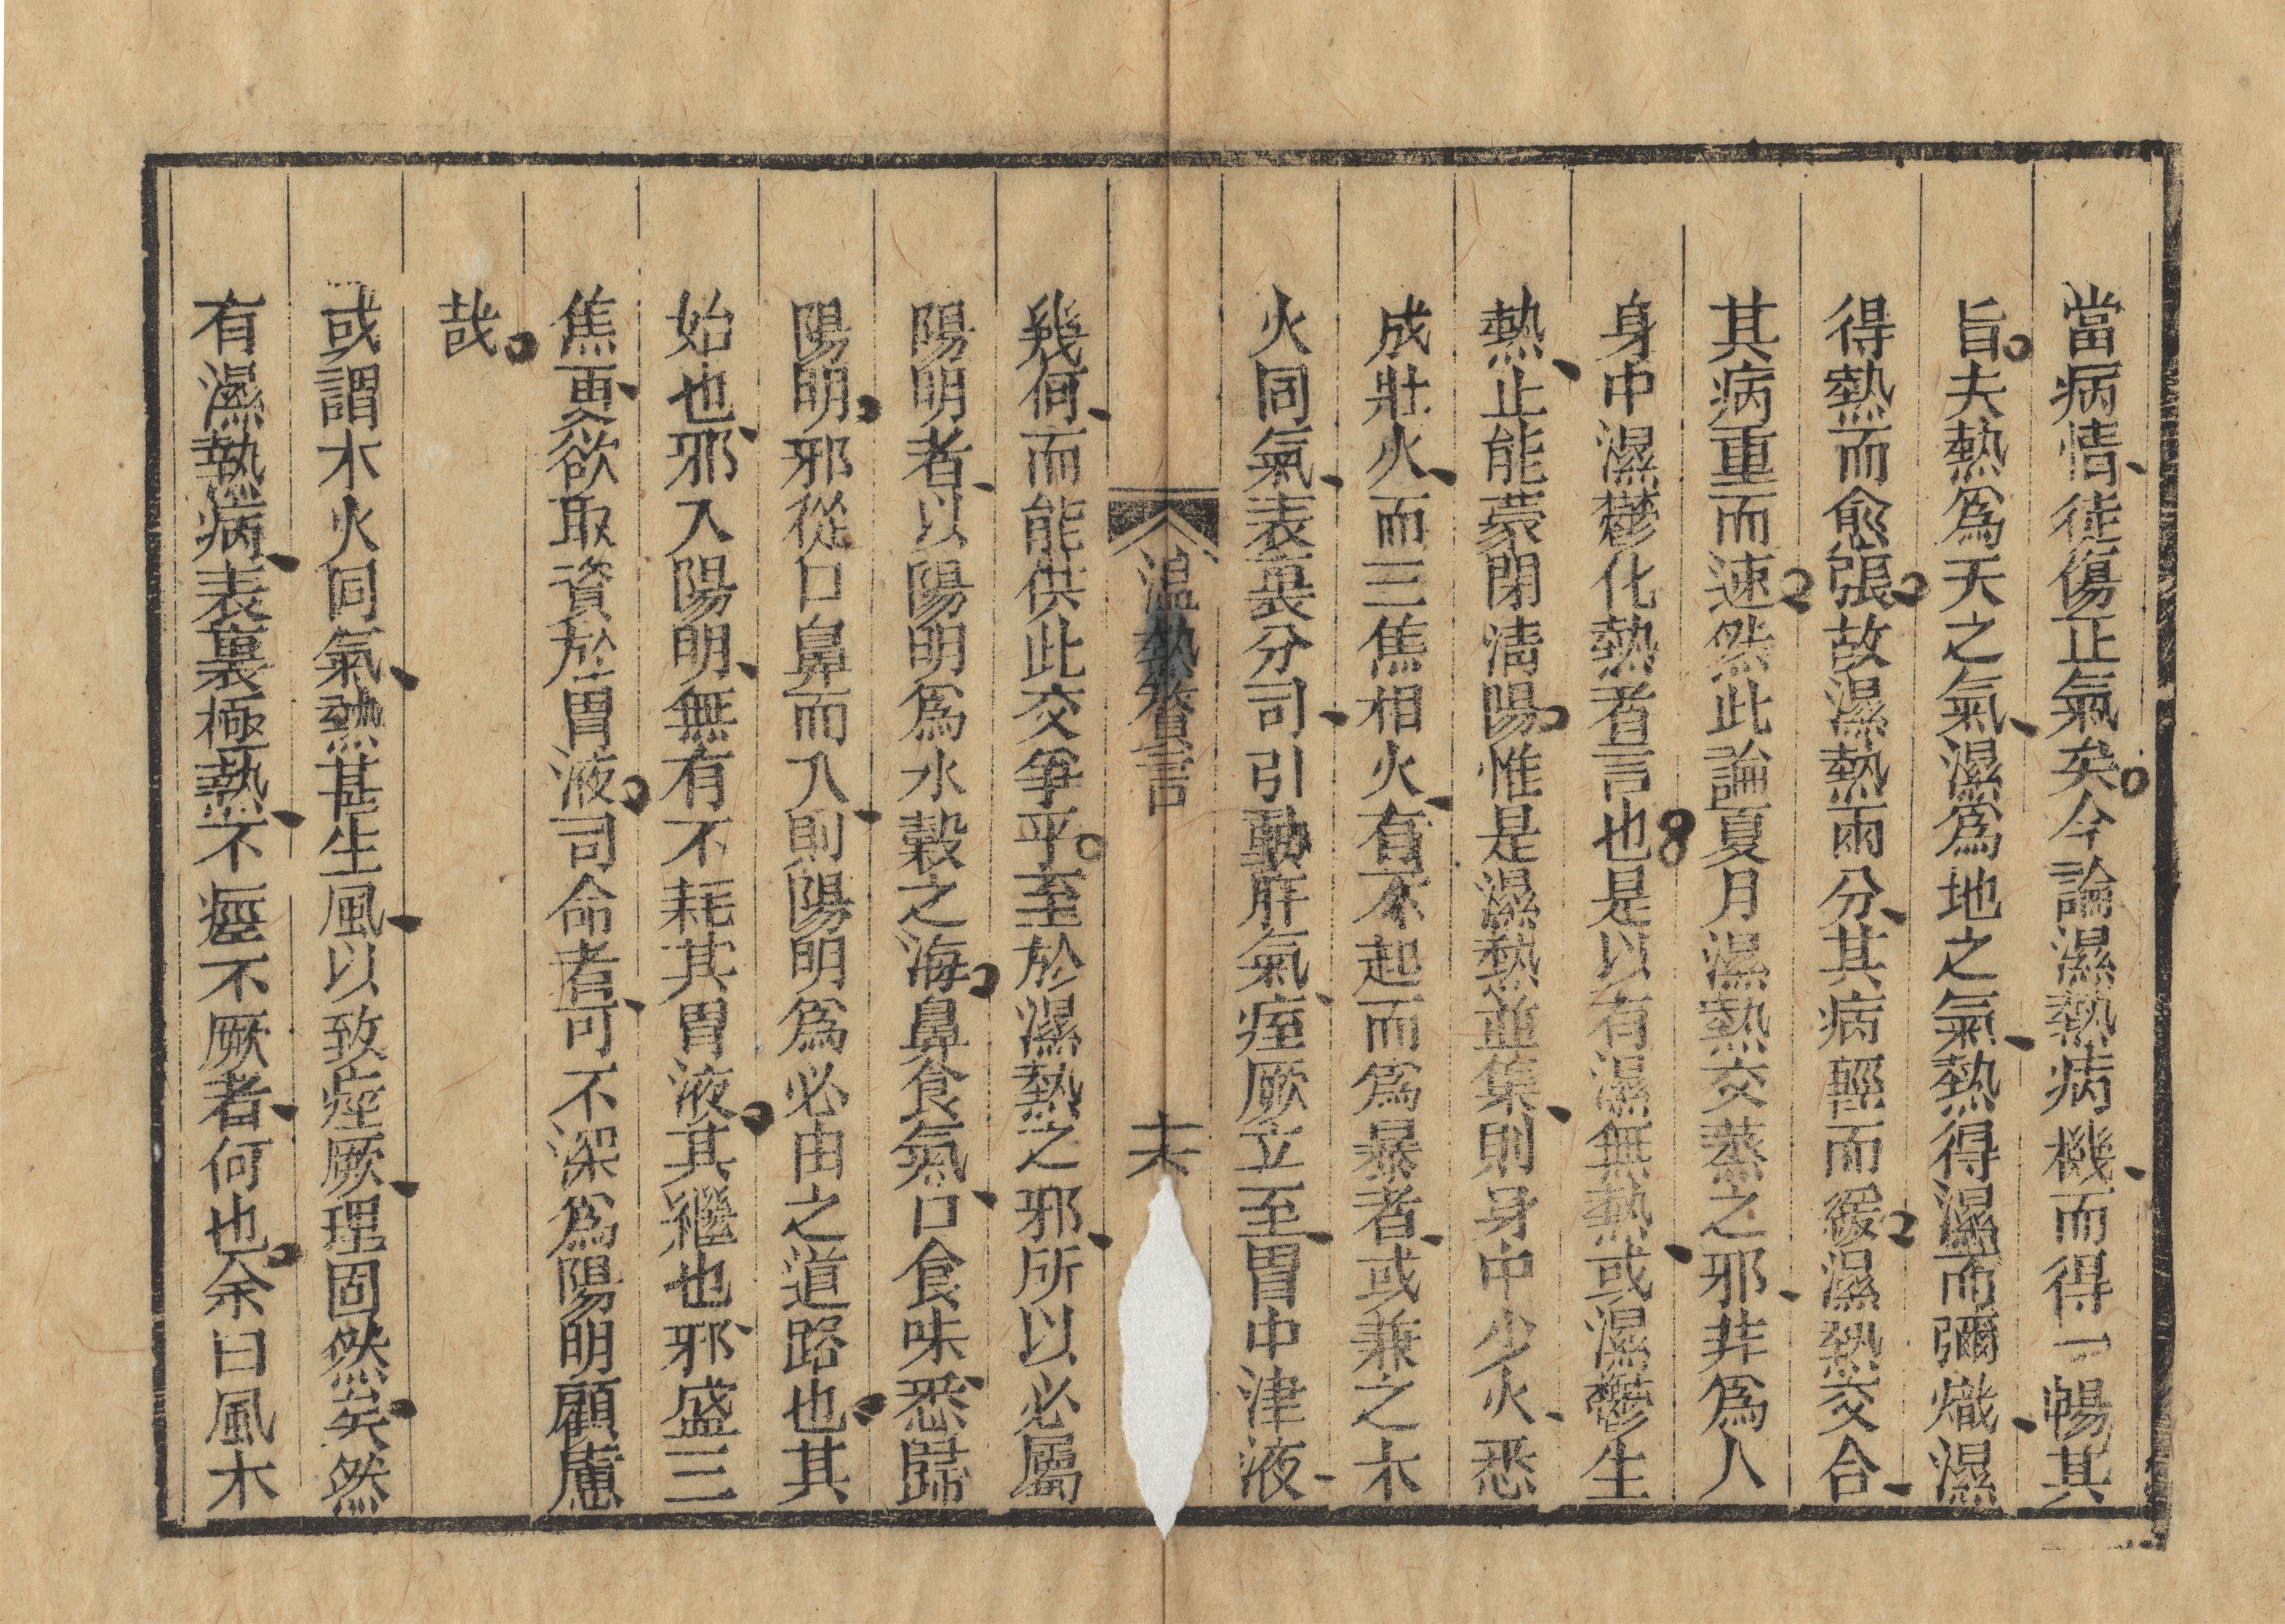 當病情徒傷正氣矣今論濕熱病機而得一暢其
旨夫熱爲天之氣濕爲地之氣熱得濕而彌熾濕
得熱而愈張故濕熱兩分其病輕而緩濕熱交合
其病重而速然此論夏月濕熱交蒸之邪非爲人
身中濕鬱化熱者言也是以有濕無熱或濕鬱生
熱止能蒙閉淸陽惟是濕熱並集則身中少火悉
成壯火而三焦相火有不起而爲暴者或兼之木
火同氣表裏分司引動肝氣痙厥立至胃中津液
溫熱贅言
十六
幾何而能供此交爭乎至於濕熱之邪所以必屬
陽明者以陽明爲水穀之海鼻食氣口食味悉歸
陽明邪從口鼻而入則陽明爲必由之道路也其
始也邪入陽明無有不耗其胃液其繼也邪盛三
焦更欲取資於胃液司命者可不深爲陽明顧慮
哉
或謂木火同氣熱甚生風以致痙厥理固然矣然
有濕熱病表裏極熱不痙不厥者何也余曰風木